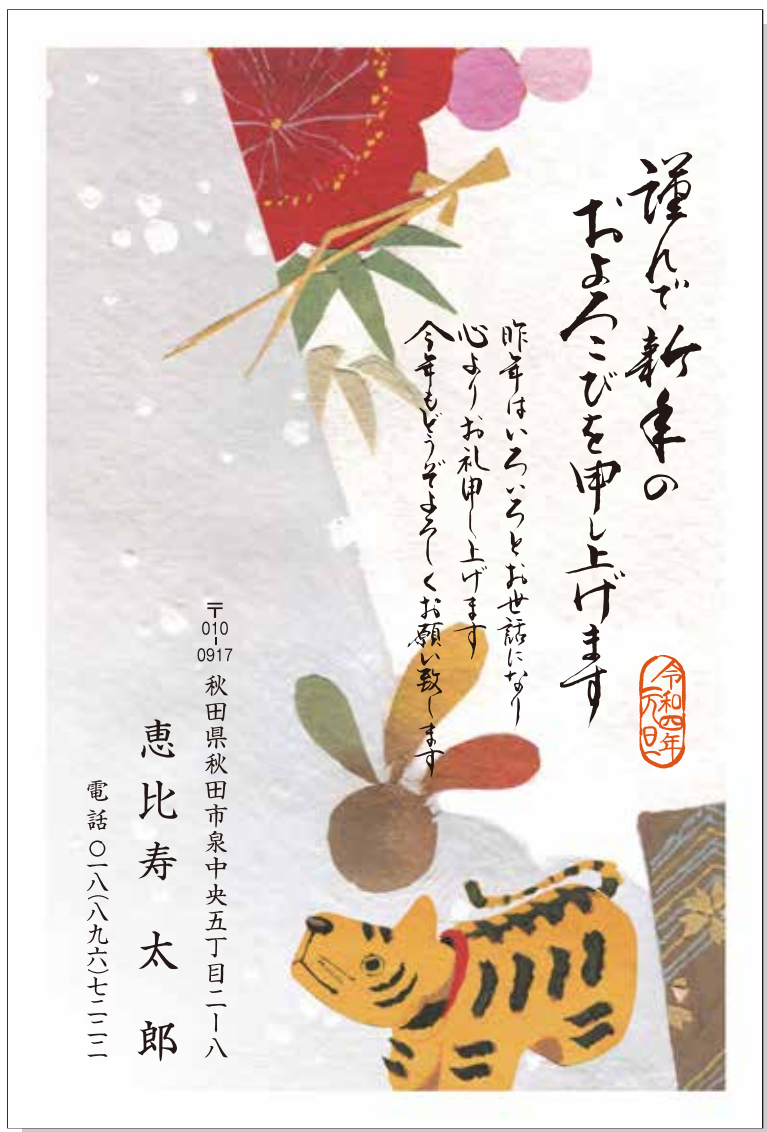 謹んで新年の
およろこびを申し上げます
昨年はいろいろとお世話になり
心よりお礼申し上げます
今年もどうぞよろしくお願い致します
令和四年
元旦
〒010-0917 秋田県秋田市泉中央五丁目二ー八
恵比寿 太郎
電話 〇一八(八九六)七二二二